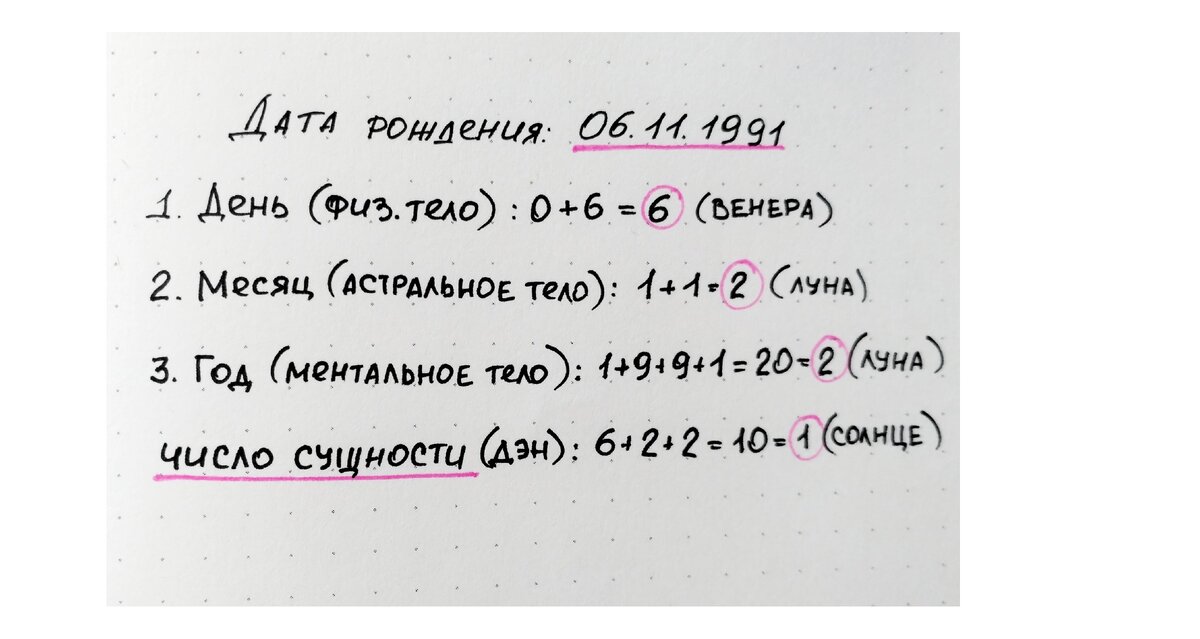 Дата рождения: 06.11.1991
1. День (физ.тело): 0+6=6 (Венера)
2. Месяц (астральное тело): 1+1=2 (Луна)
3. Год (ментальное тело): 1+9+9+1=20=2 (Луна)
число сущности (дэн): 6+2+2=10=1 (Солнце)